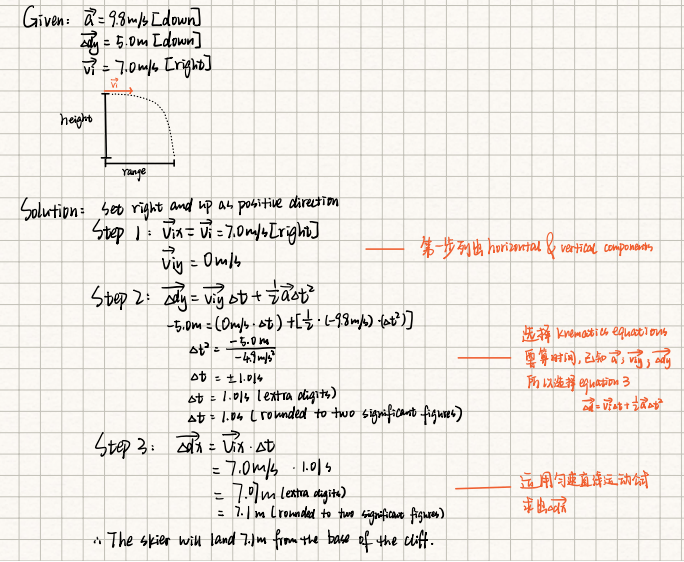 Given: a⃗ = 9.8m/s [down]
Δd⃗y = 5.0m [down]
v⃗i = 7.0m/s [right]
v⃗i
height
range
Solution: set right and up as positive direction
Step 1: v⃗ix = v⃗i = 7.0m/s [right]
v⃗iy = 0m/s
第一步列出 horizontal & vertical components
Step 2: Δd⃗y = v⃗iy Δt + ½a⃗Δt²
-5.0m = (0m/s · Δt) + [½ · (-9.8m/s) · (Δt²)]
Δt² = -5.0m / -4.9m/s²
Δt = ±1.01s
Δt = 1.01s (extra digits)
Δt = 1.0s (rounded to two significant figures)
选择 knematics equations
要算时间, 已知 a⃗, v⃗iy, Δd⃗y
所以选择 equation 3
Δd⃗ = v⃗iΔt + ½a⃗Δt²
Step 3: Δd⃗x = v⃗ix · Δt
= 7.0m/s · 1.01s
= 7.07m (extra digits)
= 7.1m (rounded to two significant figures)
运用匀速直线运动公式
求出Δd⃗x
∴ The skier will land 7.1m from the base of the cliff.